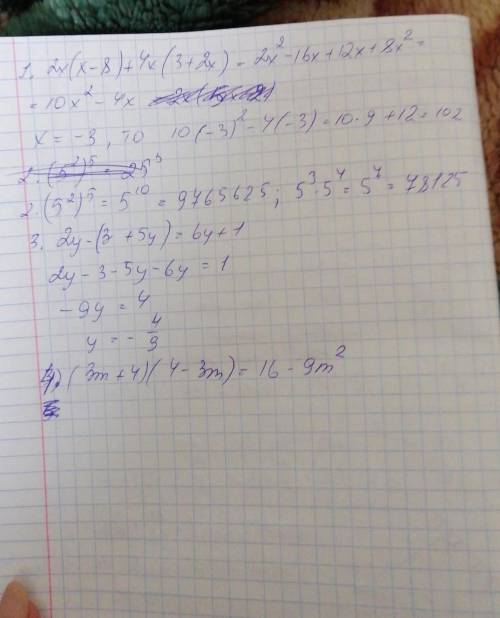 1. 2x(x-8)+4x(3+2x) = 2x²-16x+12x+8x² =
= 10x² - 4x
x = -3, то 10(-3)² - 4(-3) = 10·9+12 = 102
2. (5²)⁵ = 25⁵
2. (5²)⁵ = 5¹⁰ = 9765625; 5³·5⁴ = 5⁷ = 78125
3. 2y-(3+5y) = 6y+1
2y-3-5y-6y = 1
-9y = 4
y = -4/9
4) (3m+4)(4-3m) = 16 - 9m²